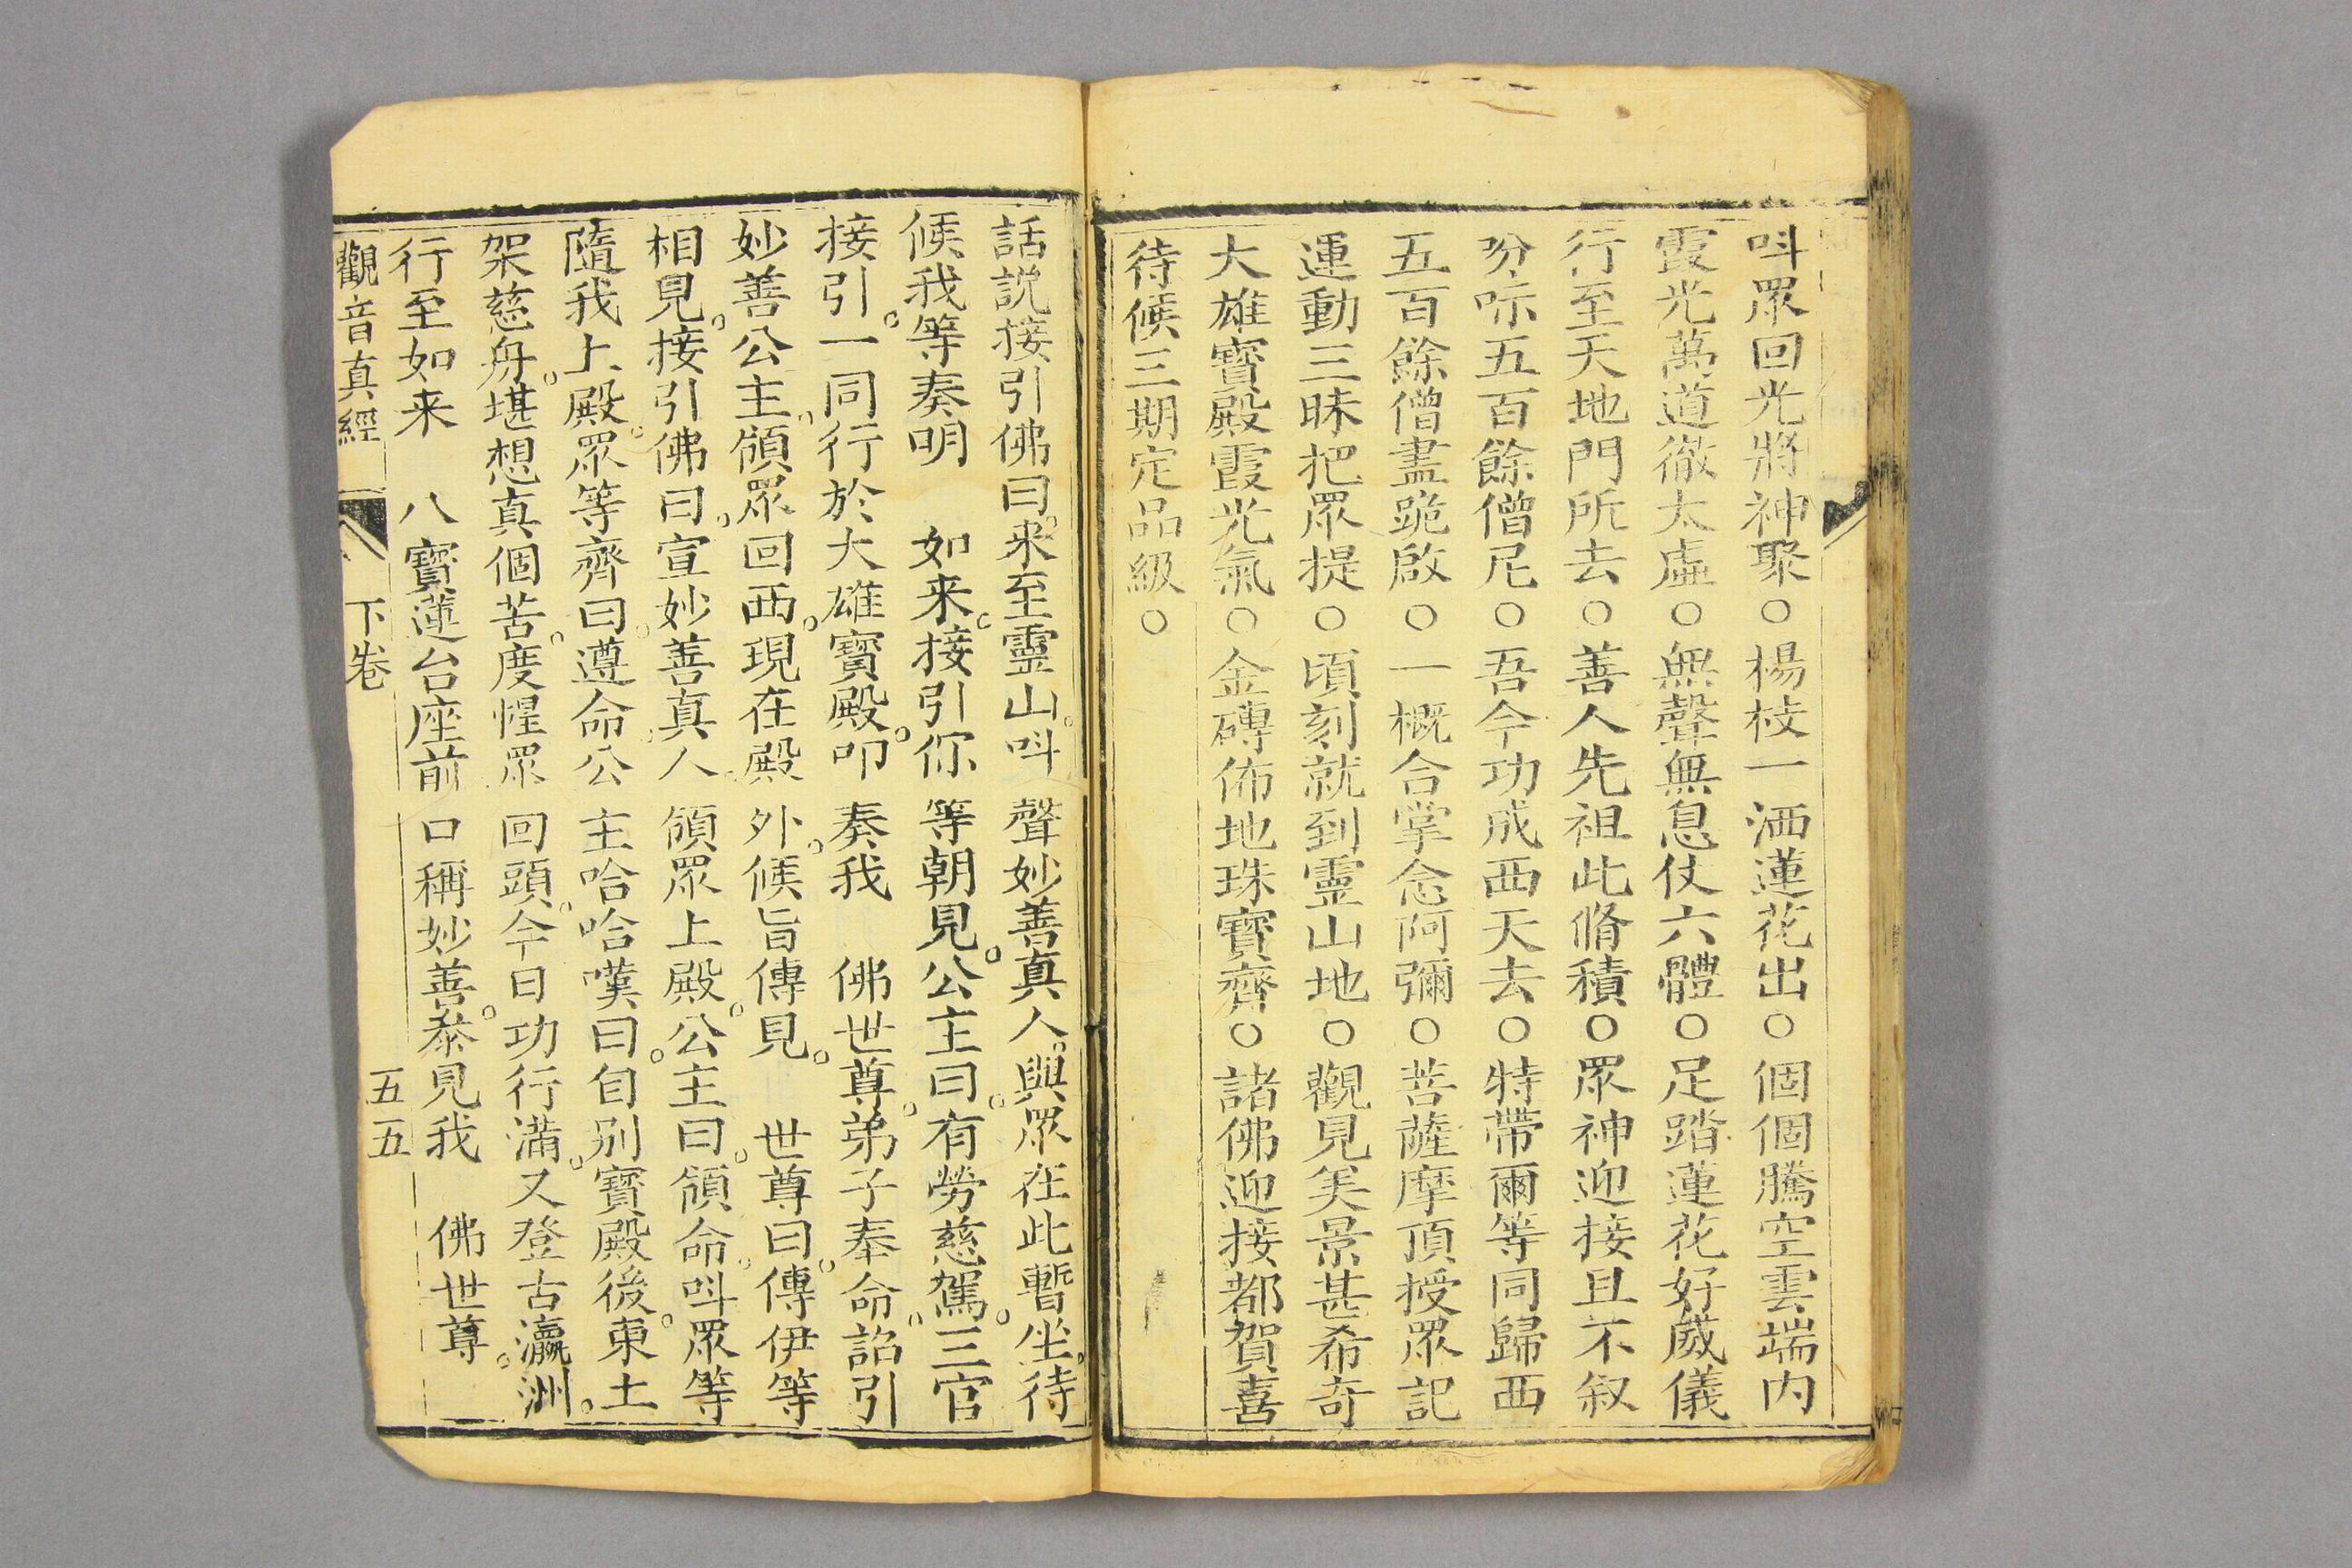 呌眾回光將神聚○楊枝一洒蓮花出○個個騰空雲端内
霞光萬道徹太虛○無聲無息仗六體○足踏蓮花好威儀
行至天地門所去○善人先祖此脩積○眾神迎接且不叙
吩咐五百餘僧尼○吾今功成西天去○特帶爾等同歸西
五百餘僧盡跪啟○一概合掌念阿彌○菩薩摩頂授眾記
運動三昧把眾提○頃刻就到靈山地○觀見美景甚希奇
大雄寶殿霞光氣○金磚佈地珠寶齊○諸佛迎接都賀喜
待候三期定品級○
話説接引佛曰。来至靈山。呌聲妙善真人。與眾在此暫坐。待
候我等奏明　如来。接引你等朝見。公主曰。有勞慈駕。三官
接引。一同行於大雄寶殿。叩奏我　佛世尊。弟子奉命。詔引
妙善公主。領眾回西。現在殿外。候旨傳見。　世尊曰。傳伊等
相見。接引佛曰。宣妙善真人。領眾上殿。公主曰。領命。呌眾等
隨我上殿。眾等齊曰。遵命。公主哈哈嘆曰。自别寶殿後。東土
架慈舟。堪想真個苦。度惺眾回頭。今日功行满。又登古瀛洲。
行至如来　八寶蓮台座前口稱妙善。叅見我　佛世尊。
觀音真經　下卷　五五